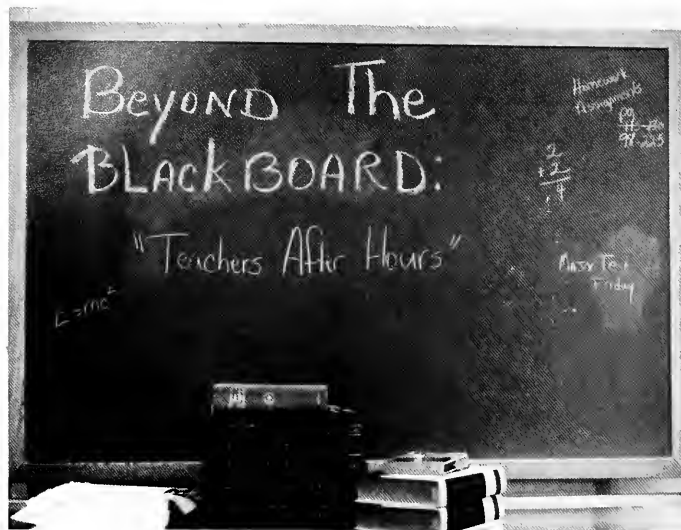 Beyond The
BLackBOARD:
"Teachers After Hours"
Homework
Assignments
pg
2
+ 2
4
E=mc²
Friday